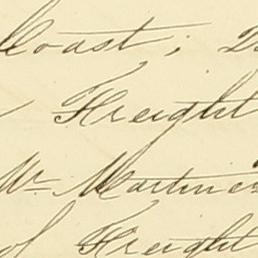 Coast;
Freight
Mr Martinez
of Freight